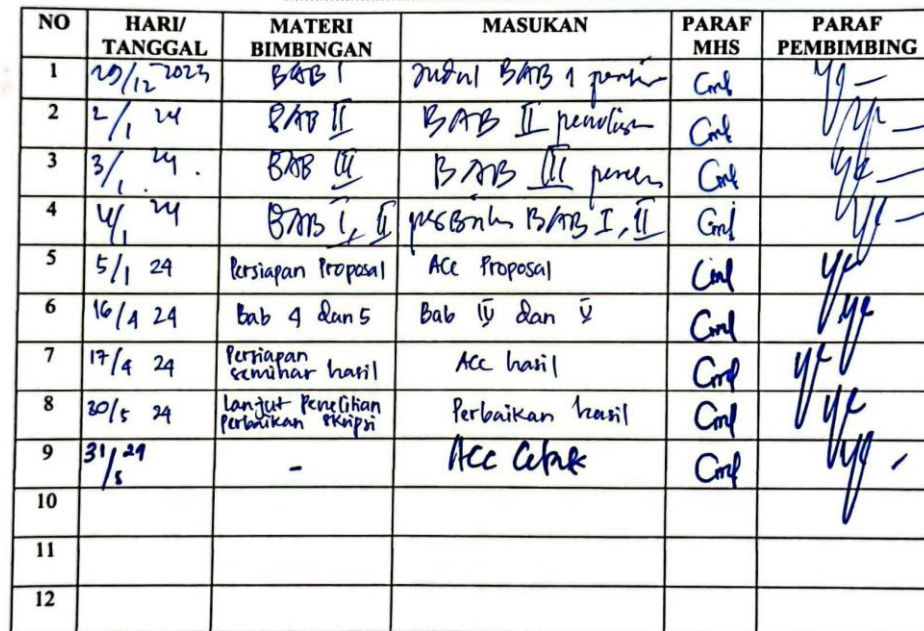 NO HARI/ TANGGAL MATERI BIMBINGAN MASUKAN PARAF MHS PARAF PEMBIMBING
1 29/12 2023 BAB I Judul BAB 1
2 2/1 24 BAB II BAB II penulisan
3 3/1 24. BAB III BAB III
4 4/1 24 BAB I, II perbaikan BAB I, II
5 5/1 24 Persiapan Proposal Acc Proposal
6 16/4 24 Bab 4 dan 5 Bab IV dan V
7 17/4 24 Persiapan seminar hasil Acc hasil
8 30/5 24 Lanjut Penelitian Perbaikan skripsi Perbaikan hasil
9 31/5 24 - Acc Cetak
10
11
12